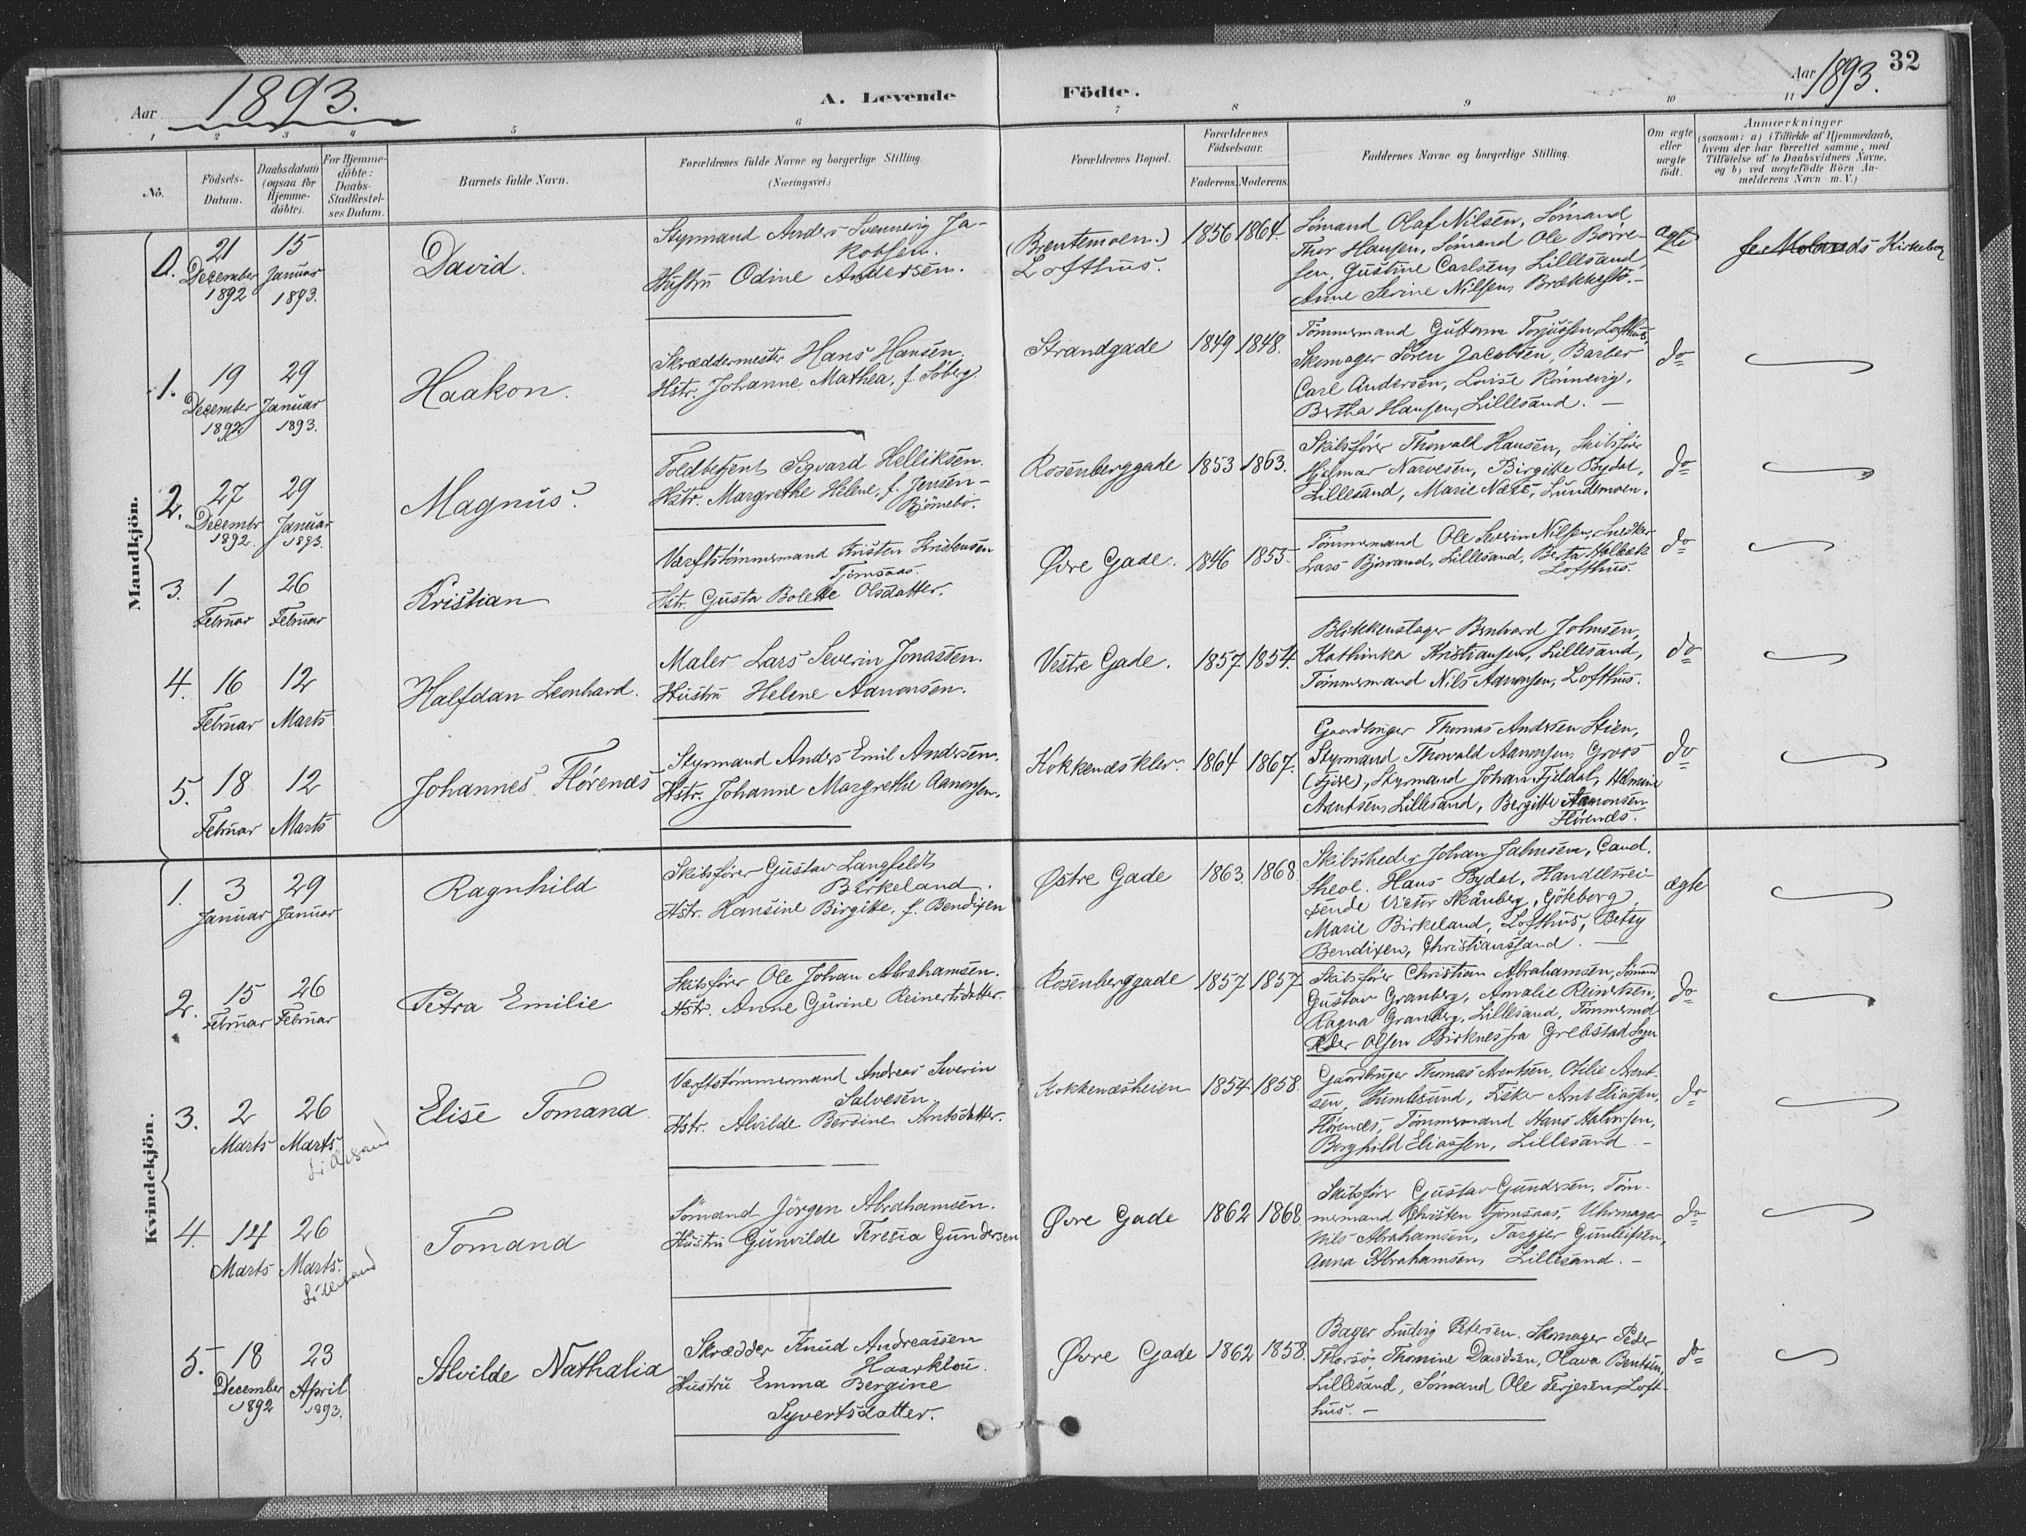 Aar 1893.
A. Levende Födte.
Aar 1893.
32
1 2 3 4 5 6 7 8 9 10 11
No.
Födsels-Datum.
Daabsdatum (ogsaa for Hjemme-döbte).
For Hjemme-döbte: Daabs-Stadfæstel-ses Datum.
Barnets fulde Navn.
Forældrenes fulde Navne og borgerlige Stilling. (Næringsvei.)
Forældrenes Bopæl.
Forældrenes Födselsaar.
Faderens. Moderens.
Faddernes Navne og borgerlige Stilling.
Om ægte eller uægte födt.
Anmærkninger
(saasom: a) i Tilfælde af Hjemmedaab, hvem der har forrettet samme, med Tilföielse af to Daabsvidners Navne, og b) ved uægtefödte Börn An-melderens Navn m. V.)
Mandkjön.
0.
21 December 1892
15 Januar 1893.
David.
Styrmand Anders Svennevig Ja-
kobsen.
Hustru Odine Andersen.
(Brentemoen.)
Lofthus.
1856 1864.
Sømand Olaf Nilsen, Sømand
Thor Hansen, Sømand Ole Børre-
sen, Gustine Carlsen, Lillesand,
Anne Serine Nilsen, Brækkestø.
ægte
se Molands Kirkebog
1.
19 December 1892
29 Januar 1893.
Haakon.
Skræddermester Hans Hansen.
Hstr. Johanne Mathea, f. Soberg.
Strandgade
1849 1848.
Tømmermand Gustav Torjussen, Lofthus,
Skomager Sören Jacobsen, Barber
Carl Andersen, Lovise Rønnevig,
Bertha Hansen, Lillesand. —
do
2.
27 Decembr. 1892.
29 Januar 1893.
Magnus.
Toldbetjent Sigvard Helliksen.
Hstr. Margrethe Helene, f. Jensen-
Bjönnebo.
Rosenberggade
1853 1863.
Skibsfører Thorvald Hansen, Skibsfører
Hjelmar Narvesen, Birgitte Bydal,
Lillesand, Marie Næss, Lundemoen.
do
3.
1 Februar
26 Februar
Kristian
Værftstömmermand Kristen Kristensen
Tjomsaas.
Hstr. Gusta Bolette Olsdatter.
Øvre Gade.
1846 1853.
Tömmermand Ole Severin Nilsen, Snedker
Lars Bjorand, Lillesand, Berta Holbæk
Lofthus.
do
4.
16 Februar
12 Marts
Halfdan Leonhard.
Maler Lars Severin Jonassen.
Hustru Helene Aanonsen.
Vestre Gade.
1857 1854.
Blikkenslager Bernhard Johnsen,
Kathinka Kristiansen, Lillesand,
Tömmermand Nils Aanonsen, Lofthus.
do
5.
18 Februar
12 Marts
Johannes Flørenæs
Styrmand Anders Emil Andersen.
Hstr. Johanne Margrethe Aanonsen.
Kokkenæskler.
1864 1867.
Gaardbruger Thomas Andersen Stien,
Styrmand Thorvald Aanonsen, Groos
(Fjære), Styrmand Johan Fjeldal, Helmine
Arentsen, Lillesand, Bergitte Aanonsen
Flørenæs.
do
Kvindekjön.
1.
3 Januar
29 Januar
Ragnhild
Skibsfører Gustav Langfeldt
Birkeland.
Hstr. Hansine Birgitte, f. Bendixen
Østre Gade
1863. 1868
Skibsrheder Johan Johnsen, Cand.
theol. Hans Bydal, Handelsrei-
sende Victor Skånberg, Göteborg,
Marie Birkeland, Lofthus, Betsy
Bendixen, Christianssand. —
ægte
2.
15 Februar
26 Februar
Petra Emilie
Skibsfører Ole Johan Abrahamsen.
Hstr. Anne Gurine Reinertsdatter.
Rosenberggade
1857 1857
Skibsfører Christian Abrahamsen, Sømand
Gustav Granberg, Amalie Reinertsen,
Ragna Granberg, Lillesand, Tømmermd
Peder Olsen Birknes fra Grebstad Sogn
do
3.
2 Marts
26 Marts.
Lillesand
Elise Tomana
Værftstömmermand Andreas Severin
Salvesen
Hstr. Alvilde Berdine Antsdatter.
Kokkenæsheien
1854 1858.
Gaardbruger Thomas Arentsen, Otilie Arent-
sen, Humlesund, Fisker Ant Eliassen,
Flørenæs, Tømmermand Hans Halvorsen,
Borghild Eliassen, Lillesand —
do
4.
14 Marts
26 Marts.
Lillesand
Tomana
Sömand Jörgen Abrahamsen.
Hustru Gunvilde Teresia Gundersen
Øvre Gade
1862 1868
Skibsfører Gustav Gundersen, Tøm-
mermand Christen Tjomsaas, Uhrmager
Nils Abrahamsen, Targjer Gunleifsen,
Anna Abrahamsen, Lillesand. —
do
5.
18 December 1892
23 April 1893.
Alvilde Nathalia
Skrædder Knud Andreassen
Haarklou.
Hustru Emma Bergine
Syvertsdatter.
Øvre Gade
1862 1858.
Bager Ludvig Petersen, Skomager Peder
Thorsö, Thomine Davidsen, Olava Bentsen,
Lillesand, Sømand Ole Terjesen, Loft-
hus. —
do